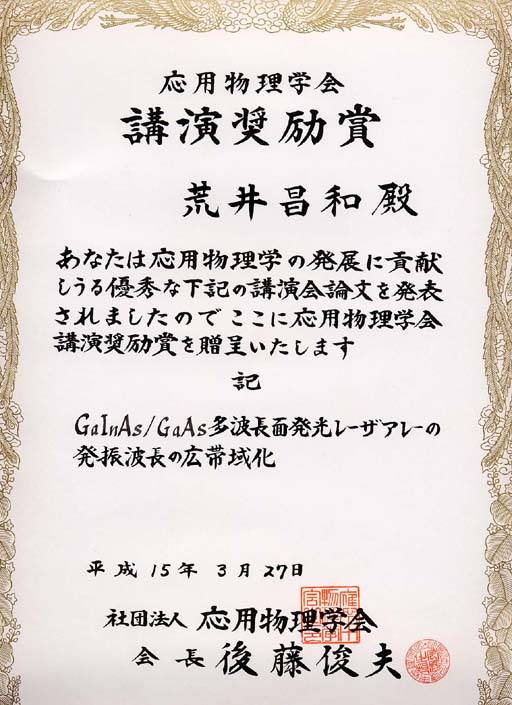 応用物理学会
講演奨励賞
荒井昌和殿
あなたは応用物理学の発展に貢献
しうる優秀な下記の講演会論文を発表
されましたのでここに応用物理学会
講演奨励賞を贈呈いたします
記
GaInAs/GaAs多波長面発光レーザアレーの
発振波長の広帯域化
平成15年3月27日
社団法人 応用物理学会
会長 後藤俊夫